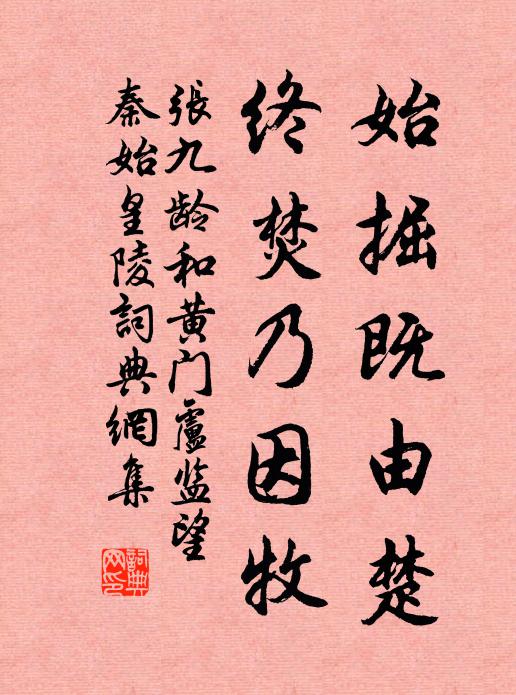 始掘既由楚
终焚乃因牧
張九龄和黄门盧监望
秦始皇陵詞典網集
詞典
网印